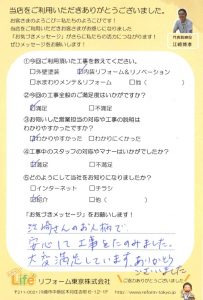 当店をご利用いただきありがとうございました。
お客さまのよろこび=私たちのよろこびです!
当店をご利用いただきお客さまがお感じになりました
「お気づきメッセージ」が私たちの活力につながります!
ぜひメッセージをお願いします!
代表取締役
江崎博幸
①今回ご利用頂いた工事を教えてください。
□外壁塗装 ☑内装リフォーム&リノベーション
□水まわりメンテ&リフォーム □他( )
②今回の工事全般のご満足度はいかがですか?
☑満足 □不満足
③お伺いした営業担当の対応や工事の説明は
わかりやすかったですか?
☑わかりやすかった □わかりにくかった
④工事中のスタッフの対応やマナーはいかがでしたか?
☑満足 □不満足
⑤どのようにして当社をお知りになりましたか?
□インターネット □チラシ
☑紹介 □他( )
「お気づきメッセージ」をお願いします!
江崎さんのお人柄で
安心して工事をたのみました。
大変満足しています。ありがとう
ございました
Life
リフォーム東京株式会社
ご協力ありがとうございました